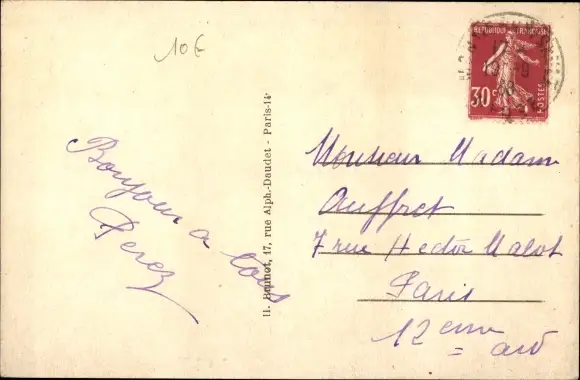 10€
REPUBLIQUE FRANCAISE
30c
POSTES
Bonjour a tous
Perez
H. Brunot, 17, rue Alph.-Daudet - Paris-14e
Monsieur Madame
Auffret
7 rue Hector Malot
Paris
12 eme
ard